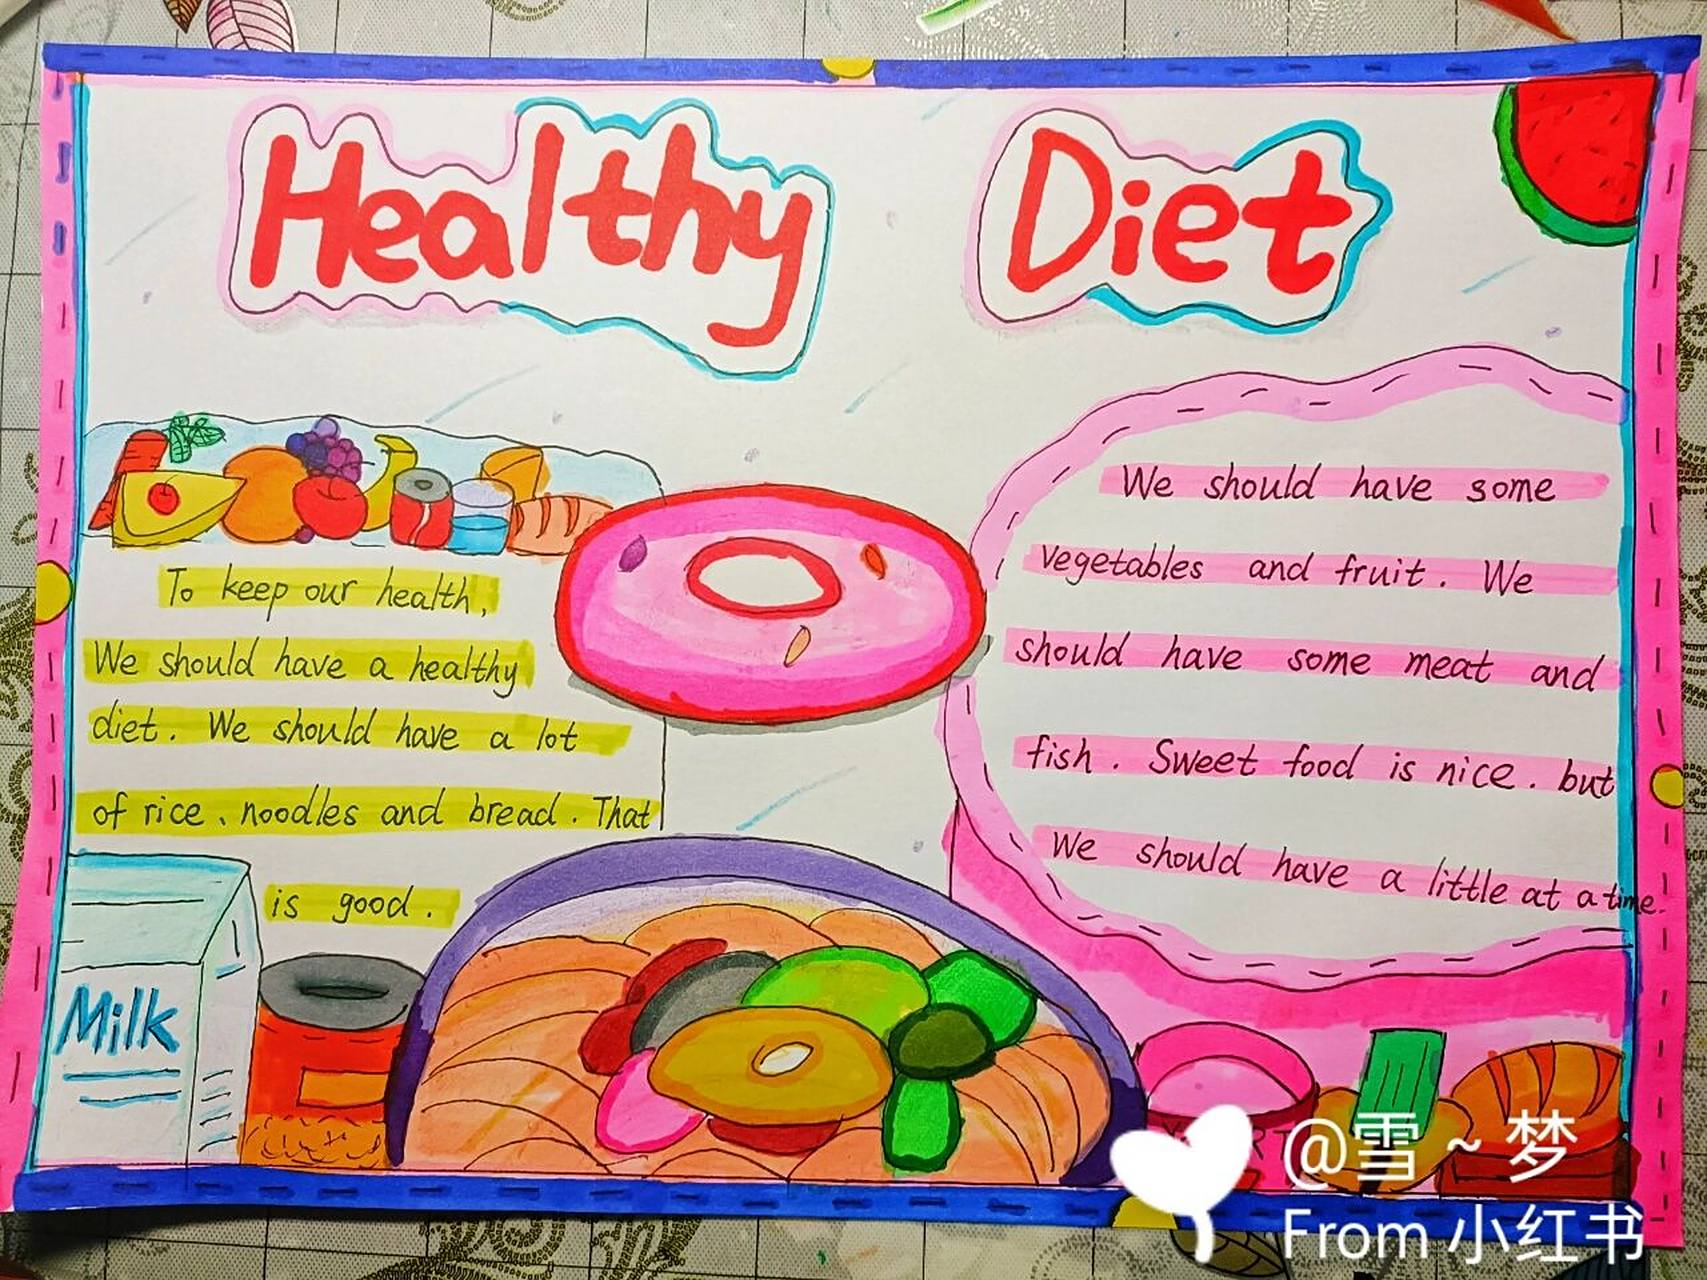 Healthy Diet
To keep our health,
We should have a healthy
diet. We should have a lot
of rice、noodles and bread. That
is good.
We should have some
vegetables and fruit. We
should have some meat and
fish. Sweet food is nice. but
We should have a little at a time.
Milk
@雪~梦
From 小红书